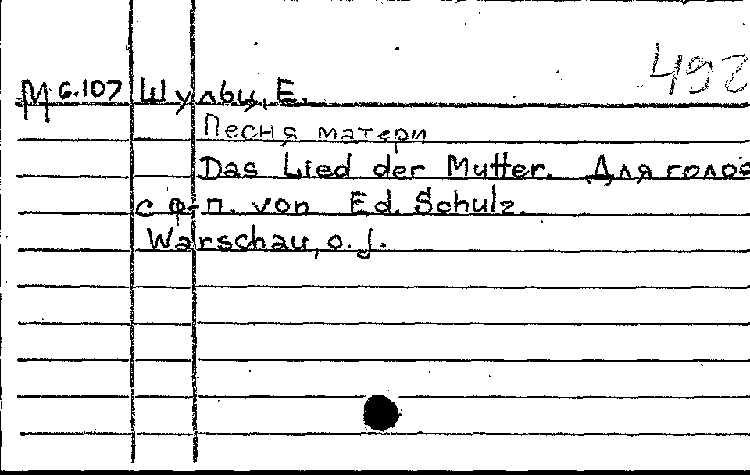 492
М 6.107 Шульц, Е.
Песня матери
Das Lied der Mutter. Для голос
с ф-п. von Ed. Schulz.
Warschau, o. J.